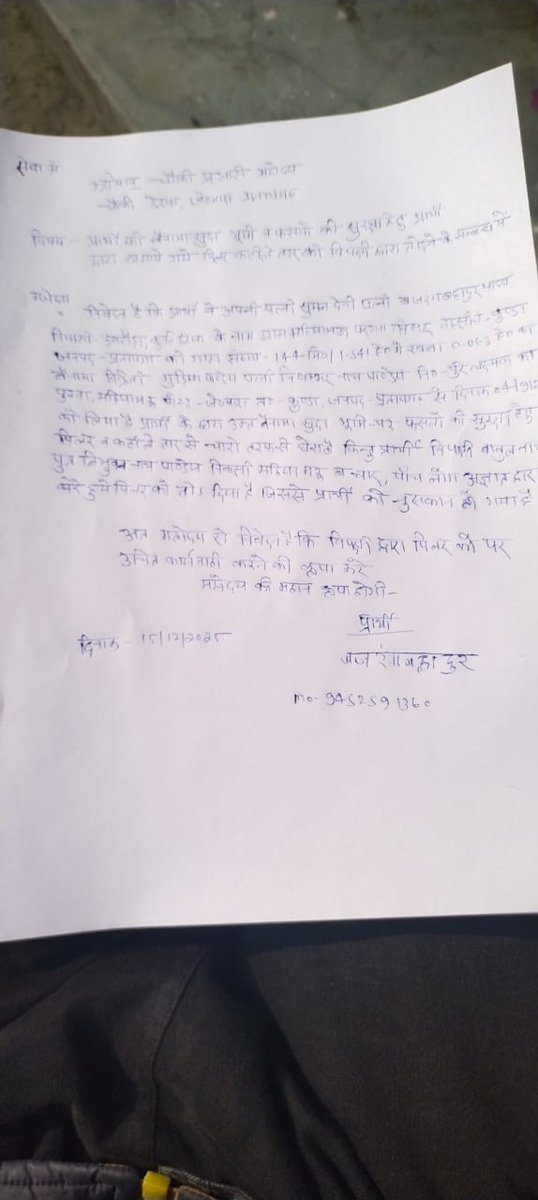 सेवा में
श्रीमान चौकी प्रभारी महोदय
चौकी डेरवा, जेठवारा प्रतापगढ़
विषय - प्रार्थी की बैनामा सुदा भूमि व फसलो की सुरक्षा हेतु प्रार्थी
द्वारा लगाये गये पिलर कटीले तार को विपक्षी द्वारा तोड़ने के सम्बन्ध में
महोदय
निवेदन है कि प्रार्थी ने अपनी पत्नी सुमन देवी पत्नी बजरंगबहादुर
निवासी के नाम ग्राम परगना बिहार तहसील - कुण्डा
जनपद - प्रतापगढ़ की गाटा संख्या - 144 मि०/1.541 हे० में रकबा 0.063 हे० का
बैनामा विक्रेता पत्नी पाण्डेय नि०
जेठवारा कुण्डा, जनपद - प्रतापगढ़ से दिनांक
को लिया है प्रार्थी के द्वारा उक्त बैनामा सुदा भूमि पर फसलो की सुरक्षा हेतु
पिलर व कटीले तार से चारो तरफ से घेरा है किन्तु प्रार्थी विपक्षी
पुत्र पाण्डेय निवासी व चार, पाँच लोग अज्ञात द्वारा
घेरे हुये पिलर को तोड़ दिया है जिससे प्रार्थी को नुकसान हो गया है
अतः महोदय से निवेदन है कि विपक्षी द्वारा पिलर को पर
उचित कार्यवाही करने की कृपा करे
महोदय की महान कृपा होगी -
प्रार्थी
दिनांक - 15/12/2025
बजरंगबहादुर
mo - 9452591360